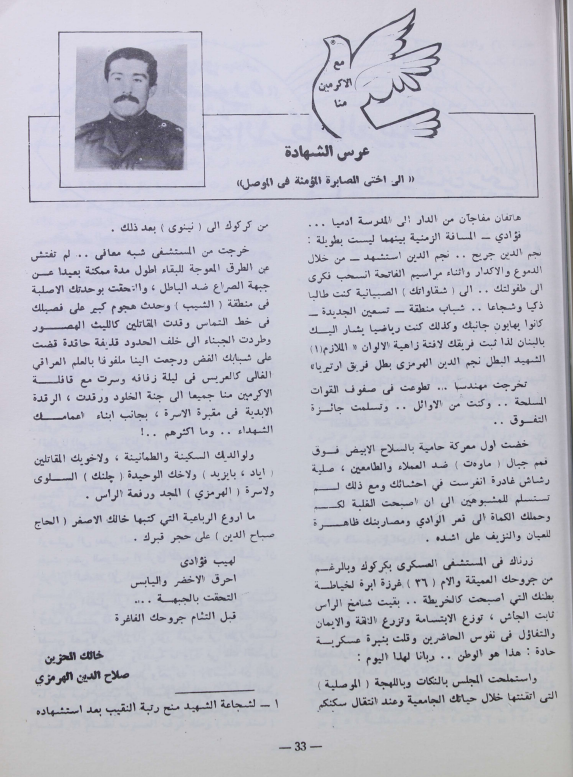 مع
الاكرمين
منا
عرس الشهادة
« الى اختى الصابرة المؤمنة فى الموصل»
هاتفان مفاجآن من الدار الى المدرسة أدميا ...
فؤادي ــ المسافة الزمنية بينهما ليست بطويلة :
نجم الدين جريح .. نجم الدين استشهد ــ من خلال
الدموع والاكدار واثناء مراسيم الفاتحة انسحب فكرى
الى طفولتك .. الى ( شقاواتك ) الصبيانية كنت طالبا
ذكيا وشجاعا .. شباب منطقة ــ تسعين الجديدة ــ
كانوا يهابون جانبك وكذلك كنت رياضيا يشار اليك
بالبنان لذا ثبت فريقك لافتة زاهية الالوان « الملازم(١)
الشهيد البطل نجم الدين الهرمزى بطل فريق ارتيريا»
تخرجت مهندسا .. تطوعت فى صفوف القوات
المسلحة .. وكنت من الاوائل .. وتسلمت جائزة
التفوق ..
خضت اول معركة حامية بالسلاح الابيض فوق
قمم جبال ( ماوەت ) ضد العملاء والطامعين ، صلية
رشاش غادرة انغرست في احشائك ومع ذلك لم
تستسلم للمشبوهين الى ان اصبحت الغلبة لكم
وحملك الكماة الى قعر الوادي ومصارينك ظاهرة
للعيان والنزيف على اشده .
زرناك فى المستشفى العسكرى بكركوك وبالرغم
من جروحك العميقة وآلام ( ٣٦ ) غرزة ابرة لخياطة
بطنك التي اصبحت كالخريطة .. بقيت شامخ الرأس
ثابت الجأش ، توزع الابتسامة وتزرع الثقة والايمان
والتفاؤل فى نفوس الحاضرين وقلت بنبرة عسكرية
حادة : هذا هو الوطن .. ربانا لهذا اليوم :
واستملحت المجلس بالنكات وباللهجة ( الموصلية )
التى اتقنتها خلال حياتك الجامعية وعند انتقال سكنكم
من كركوك الى ( نينوى ) بعد ذلك .
خرجت من المستشفى شبه معافى .. لم تفتش
عن الطرق المعوجة للبقاء اطول مدة ممكنة بعيدا عن
جبهة الصراع ضد الباطل ، والتحقت بوحدتك الاصلية
في منطقة ( الشيب ) وحدث هجوم كبير على فصيلك
في خط التماس وقدت المقاتلين كالليث الهصور
وطردت الجبناء الى خلف الحدود قذيفة حاقدة قضت
على شبابك الغض ورجعت الينا ملفوفا بالعلم العراقي
الغالى كالعريس فى ليلة زفافه وسرت مع قافلة
الاكرمين منا جميعا الى جنة الخلود ورقدت ، الرقدة
الابدية فى مقبرة الاسرة ، بجانب ابناء اعمامك
الشهداء .. وما اكثرهم ..!
ولوالديك السكينة والطمانينة ، ولاخويك المقاتلين
( اياد ، بايزيد ) ولاخك الوحيدة ( چلنك ) السلوى
ولاسرة ( الهرمزي ) المجد ورفعة الرأس .
ما اروع الرباعية التي كتبها خالك الاصغر ( الحاج
صباح الدين ) على حجر قبرك .
لهيب فؤادى
احرق الاخضر واليابس
التحقت بالجبهة ...
قبل التئام جروحك الفاغرة
خالك الحزين
صلاح الدين الهرمزي
١ ــ لشجاعة الشهيد منح رتبة النقيب بعد استشهاده
— 33 —